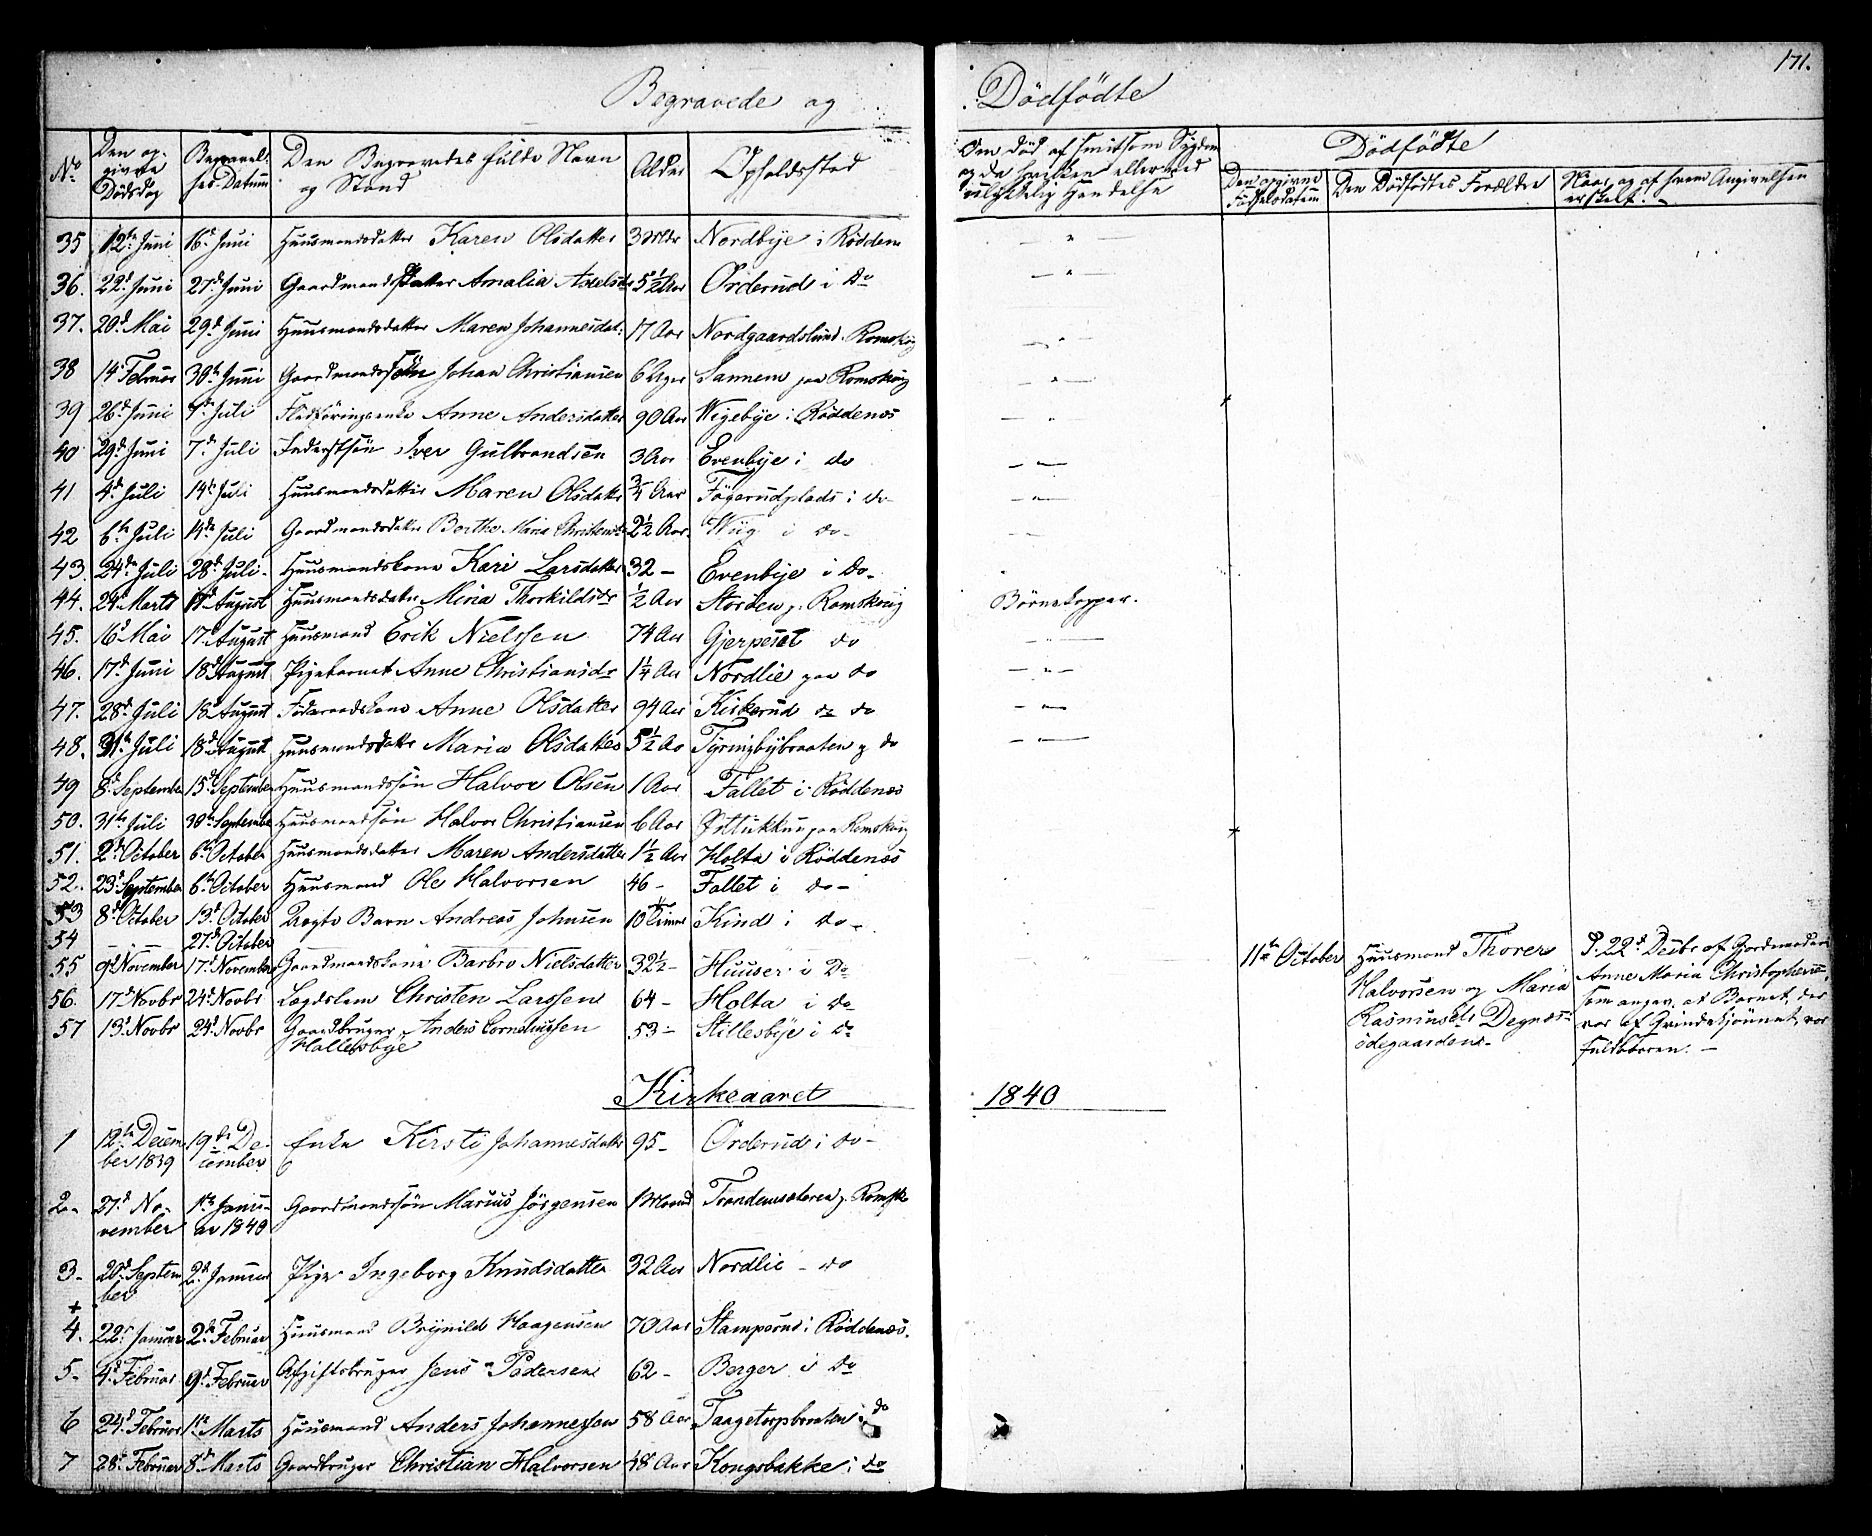 171.
Begravede og Dödfödte
No
Den opgivne Dödsdag
Begravelses-Datum
Den Begravedes fulde Navn og Stand
Alder
Opholdssted
Om död af smitsom Sygdom og da hvilken eller ved ulykkelig Hendelse
Dödfödte
Den opgivne Födselsdatum
Den Dödfödtes Forældre
Naar og af hvem Angivelsen er skeet.
35 12te Juni 16d Juni Huusmandsdatter Karen Olsdatter 3 Nordbye i Röddenes
36. 22d Juni 27d Juni Gaardmandsdatter Amalia Axelsdr 5½ Aar Örderud i do
37. 20d Mai 29d Juni Huusmandsdatter Maren Johannesdat: 17 Aar Nordgaardslund Romskoug
38 14d Februar 30te Juni Gaardmandssön Johan Christiansen 6 Uger Sannem paa Romskoug
39 26d Juni Juli Anne Andersdatter 90 Aar Wigebye i Röddenes
40 29d Juni 7d Juli Inderstsön Iver Gulbrandsen 3 Aar Evenbye i do
41 4de Juli 14d Juli Huusmandsdatter Maren Olsdatter ¾ Aar Fögerudplads i do
42 6te Juli 14de Juli Gaardmandsdatter Berthe Maria Christensdr 2½ Aar Wiig i do
43. 24de Juli 28d Juli Huusmandskone Kari Larsdatter 32 - Evenbye i do
44. 24d Marts 17d August Huusmandsdatter Mina Thorkildsdr ½ Aar Storöen p. Romskoug Börnekopper.
45. 16d Mai 17d August Huusmand Erik Nielssen 74 Aar Gjerpeset do
46. 17d Juni 18d August Pigebarnet Anne Christiansdr 1¼ Aar Nordlie paa do
47. 28d Juli 18d August Föderaadskone Anne Olsdatter 94 Aar Kirkerud do do
48. 31te Juli 18d August Huusmandsdatter Maria Olsdatter 5½ Aar Tyringbybraaten p do
49 8d September 15d September Huusmandssön Halvor Olsen 1 Aar Fallet i Röddenes
50. 31te Juli 30te September Huusmandssön Halvor Christiansen 6 Aar paa Romskoug
51. 2d October 6te October Huusmandsdatter Maren Andersdatter 1½ Aar Holta i Röddenes
52. 23d September 6te October Huusmand Ole Halvorsen 46 - Fallet i do -
53 8d October 13d October Barn Andreas Johnsen 10 Timer Kind i do
54 - " - 27d October 11te October Huusmand Thorer Halvorsen og Maria Rasmusdr Degnæsödegaardene - D. 22d Decbr af Jordemoder Anne Maria Christophersd. som angav, at Barnet, der var af Qvindekjönnet, var fuldbaaren. -
55 9d November 17d November Gaardmandskone Barbro Nielsdatter 32½ - Huuser i Do
56. 17d Novbr 24d Novbr Lægdslem Christen Larssen 64 - Holta i do
57 13d Novbr 24d Novbr Gaardbruger Anders Corneliussen Hallesbye 53 - Stillesbye i do
Kirkeaaret 1840
1 12te December 1839 19de December Enke Kirsti Johannesdatter 95 - Örderud i do -
2 - 27d November 1te Januar 1840 Gaardmandssön Marius Jörgensen 1 Maaned Trandemsæteren p. Romsk
3 - 20d September 2d Januar Pige Ingeborg Knudsdatter 32 Aar Nordlie - do
+
4. 22d Januar 2d Februar Huusmand Brynild Haagensen 70 Aar i Röddenes.
5 - 4d Februar 9d Februar Afgiftsbruger Jens Pedersen 62 - Berger i do
6 24d Februar 1te Marts Huusmand Anders Johannessen 58 Aar Taagetorpbraaten i do
7 28d Februar 8d Marts Gaardbruger Christian Halvorsen 48 Aar Kongsbakke i do